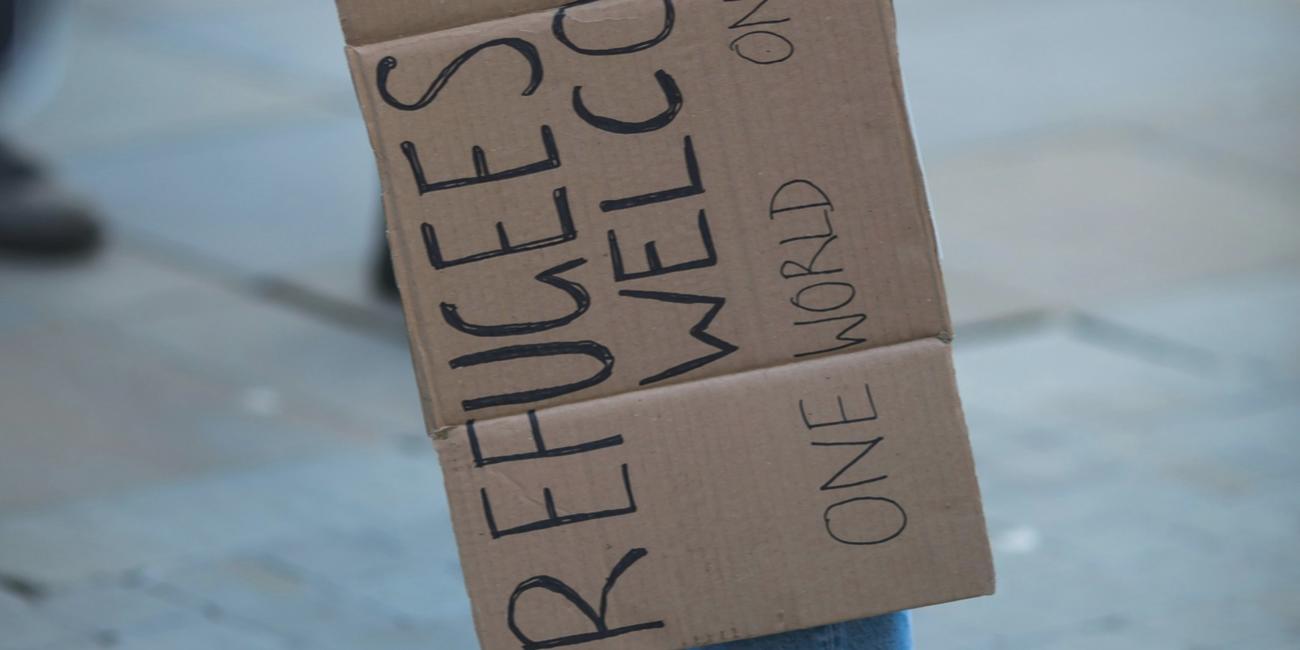 REFUGEES
WELCO
ONE WORLD ON